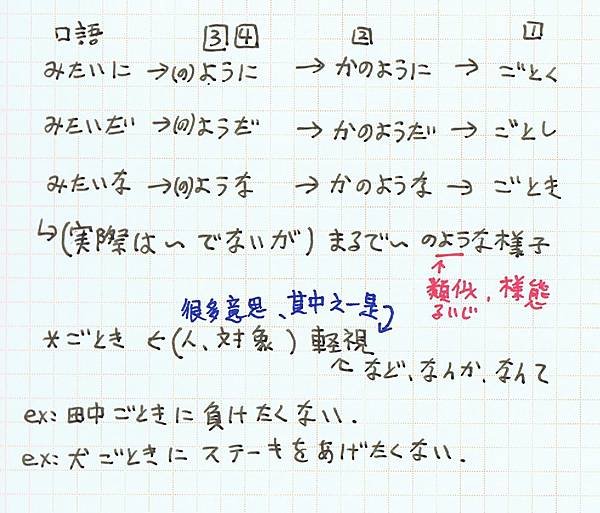 口語 3 4 2 1
みたいに →(の)ように → かのように → ごとく
みたいだ →(の)ようだ → かのようだ → ごとし
みたいな →(の)ような → かのような → ごとき
↳(実際は〜でないが) まるで〜のような様子
↑
類似、様態
るいじ
很多意思、其中之一是
*ごとき ←(人、対象) 軽視
↖ など、なんか、なんて
ex: 田中ごときに負けたくない.
ex: 犬ごときにステーキをあげたくない.